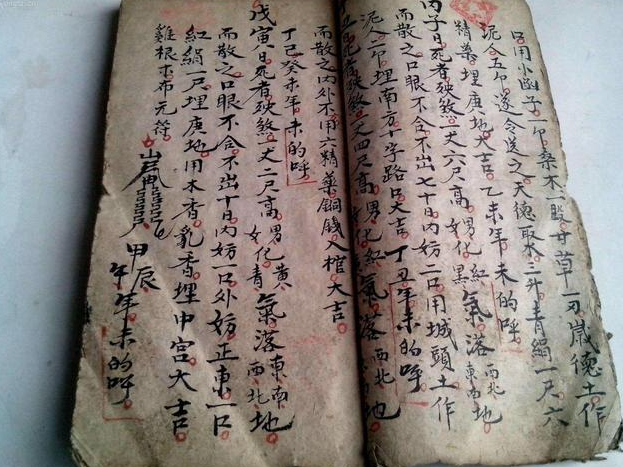 口用小函子一个桑木一股甘草一寸歲德土作
泥人五个遂令送之天德取水三升青絹一尺六
精藥埋庚地大吉 乙未年未的呼
丙子日死者殃煞一丈六尺高男化紅女黑氣落西北東南地
而散之口眼不合不出七十日內妨二口用城頭土作
泥人二个埋南方十字路口大吉 丁丑年未的呼
丑日死者殃煞一丈四尺高男化紅女氣落西北地
而散之內外不用六精藥銅錢入棺大吉
丁巳癸未年未的呼
戊寅日死者殃煞一丈二尺高男化黃女青氣落東南西北地
而散之口眼不合不出十日內妨一口外妨正東一口
紅絹一尺埋庚地用木香乳香埋中宮大吉
雞根木布元符
甲辰
午年未的呼